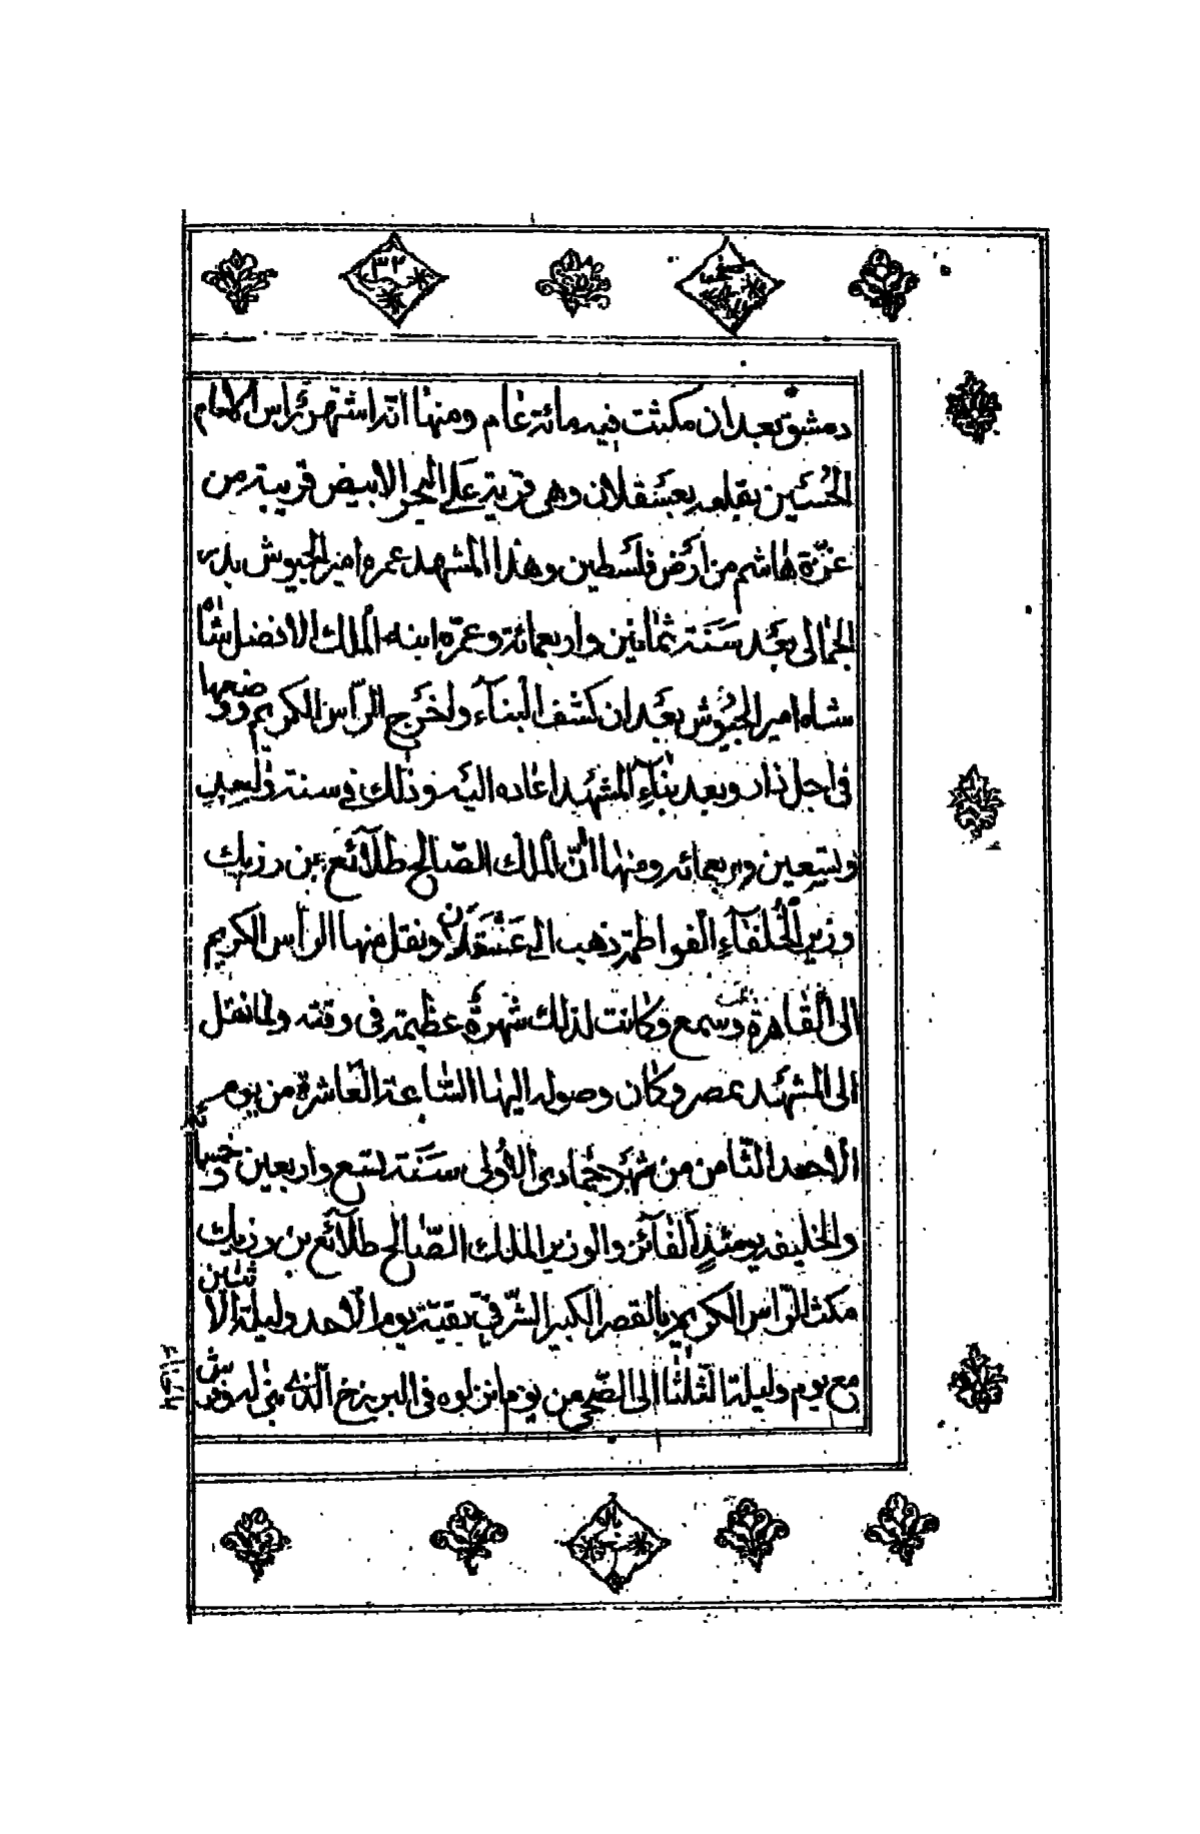 صفحه
٣٢
دمشق بعد ان مكثت فيه مائة عام ومنها انه اشتهر رأس الامام
الحسين بقلعه بعسقلان وهى قرية على البحر الابيض قريبة من
غزة هاشم من ارض فلسطين وهذا المشهد عمره امير الجيوش بدر
الجمالى بعد سنة ثمانين واربعمائة وعمّره ابنه الملك الافضل شاه
شاه امير الجيوش بعد ان كشف البناء واخرج الرأس الكريم ووضعها
فى اجل دار وبعد بناء المشهد اعاده اليه وذلك فى سنة
وتسعين واربعمائه ومنها انّ الملك الصّالح طلائع بن رزيك
وزير الخلفاء الفواطمة ذهب الى عسقلان ونقل منها الرأس الكريم
الى القاهرة وسمع وكانت لذلك شهرة عظيمة فى وقته ولما نقل
الى المشهد بمصر وكان وصوله اليها السّاعة العاشرة من يوم
الاحد الثامن من شهر جمادى الأولى سنة تسع واربعين وخمسمائة
والخليفه يومئذٍ الفائز والوزير الملك الصّالح طلائع بن رزيك
مكث الرّأس الكريم بالقصر الكبير الشّرقىّ بقية يوم الأحد وليلة الاثنين
مع يوم وليلة الثلثا الى الضّحى من يوم انزلوه فى البرزخ الّذى بنى له وفرش